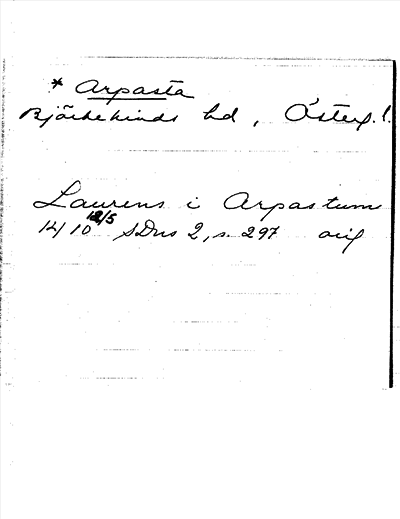 * Arpasta
Björkekinds hd, Österg.l.
Laurens i Arpastum
1410 12/5 SDns 2, s. 297 orig